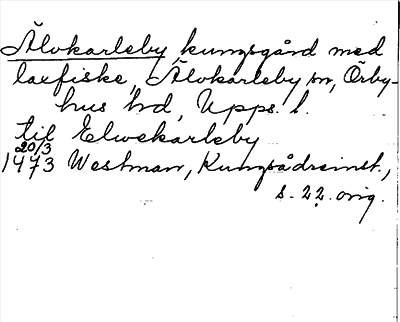 Älvkarleby, kungsgård med
laxfiske, Älvkarleby sn, Örby-
hus hd, Upps. l.
til Elwekarleby
20/3
1473 Westman, Kungsådreinst.,
s. 22. orig.